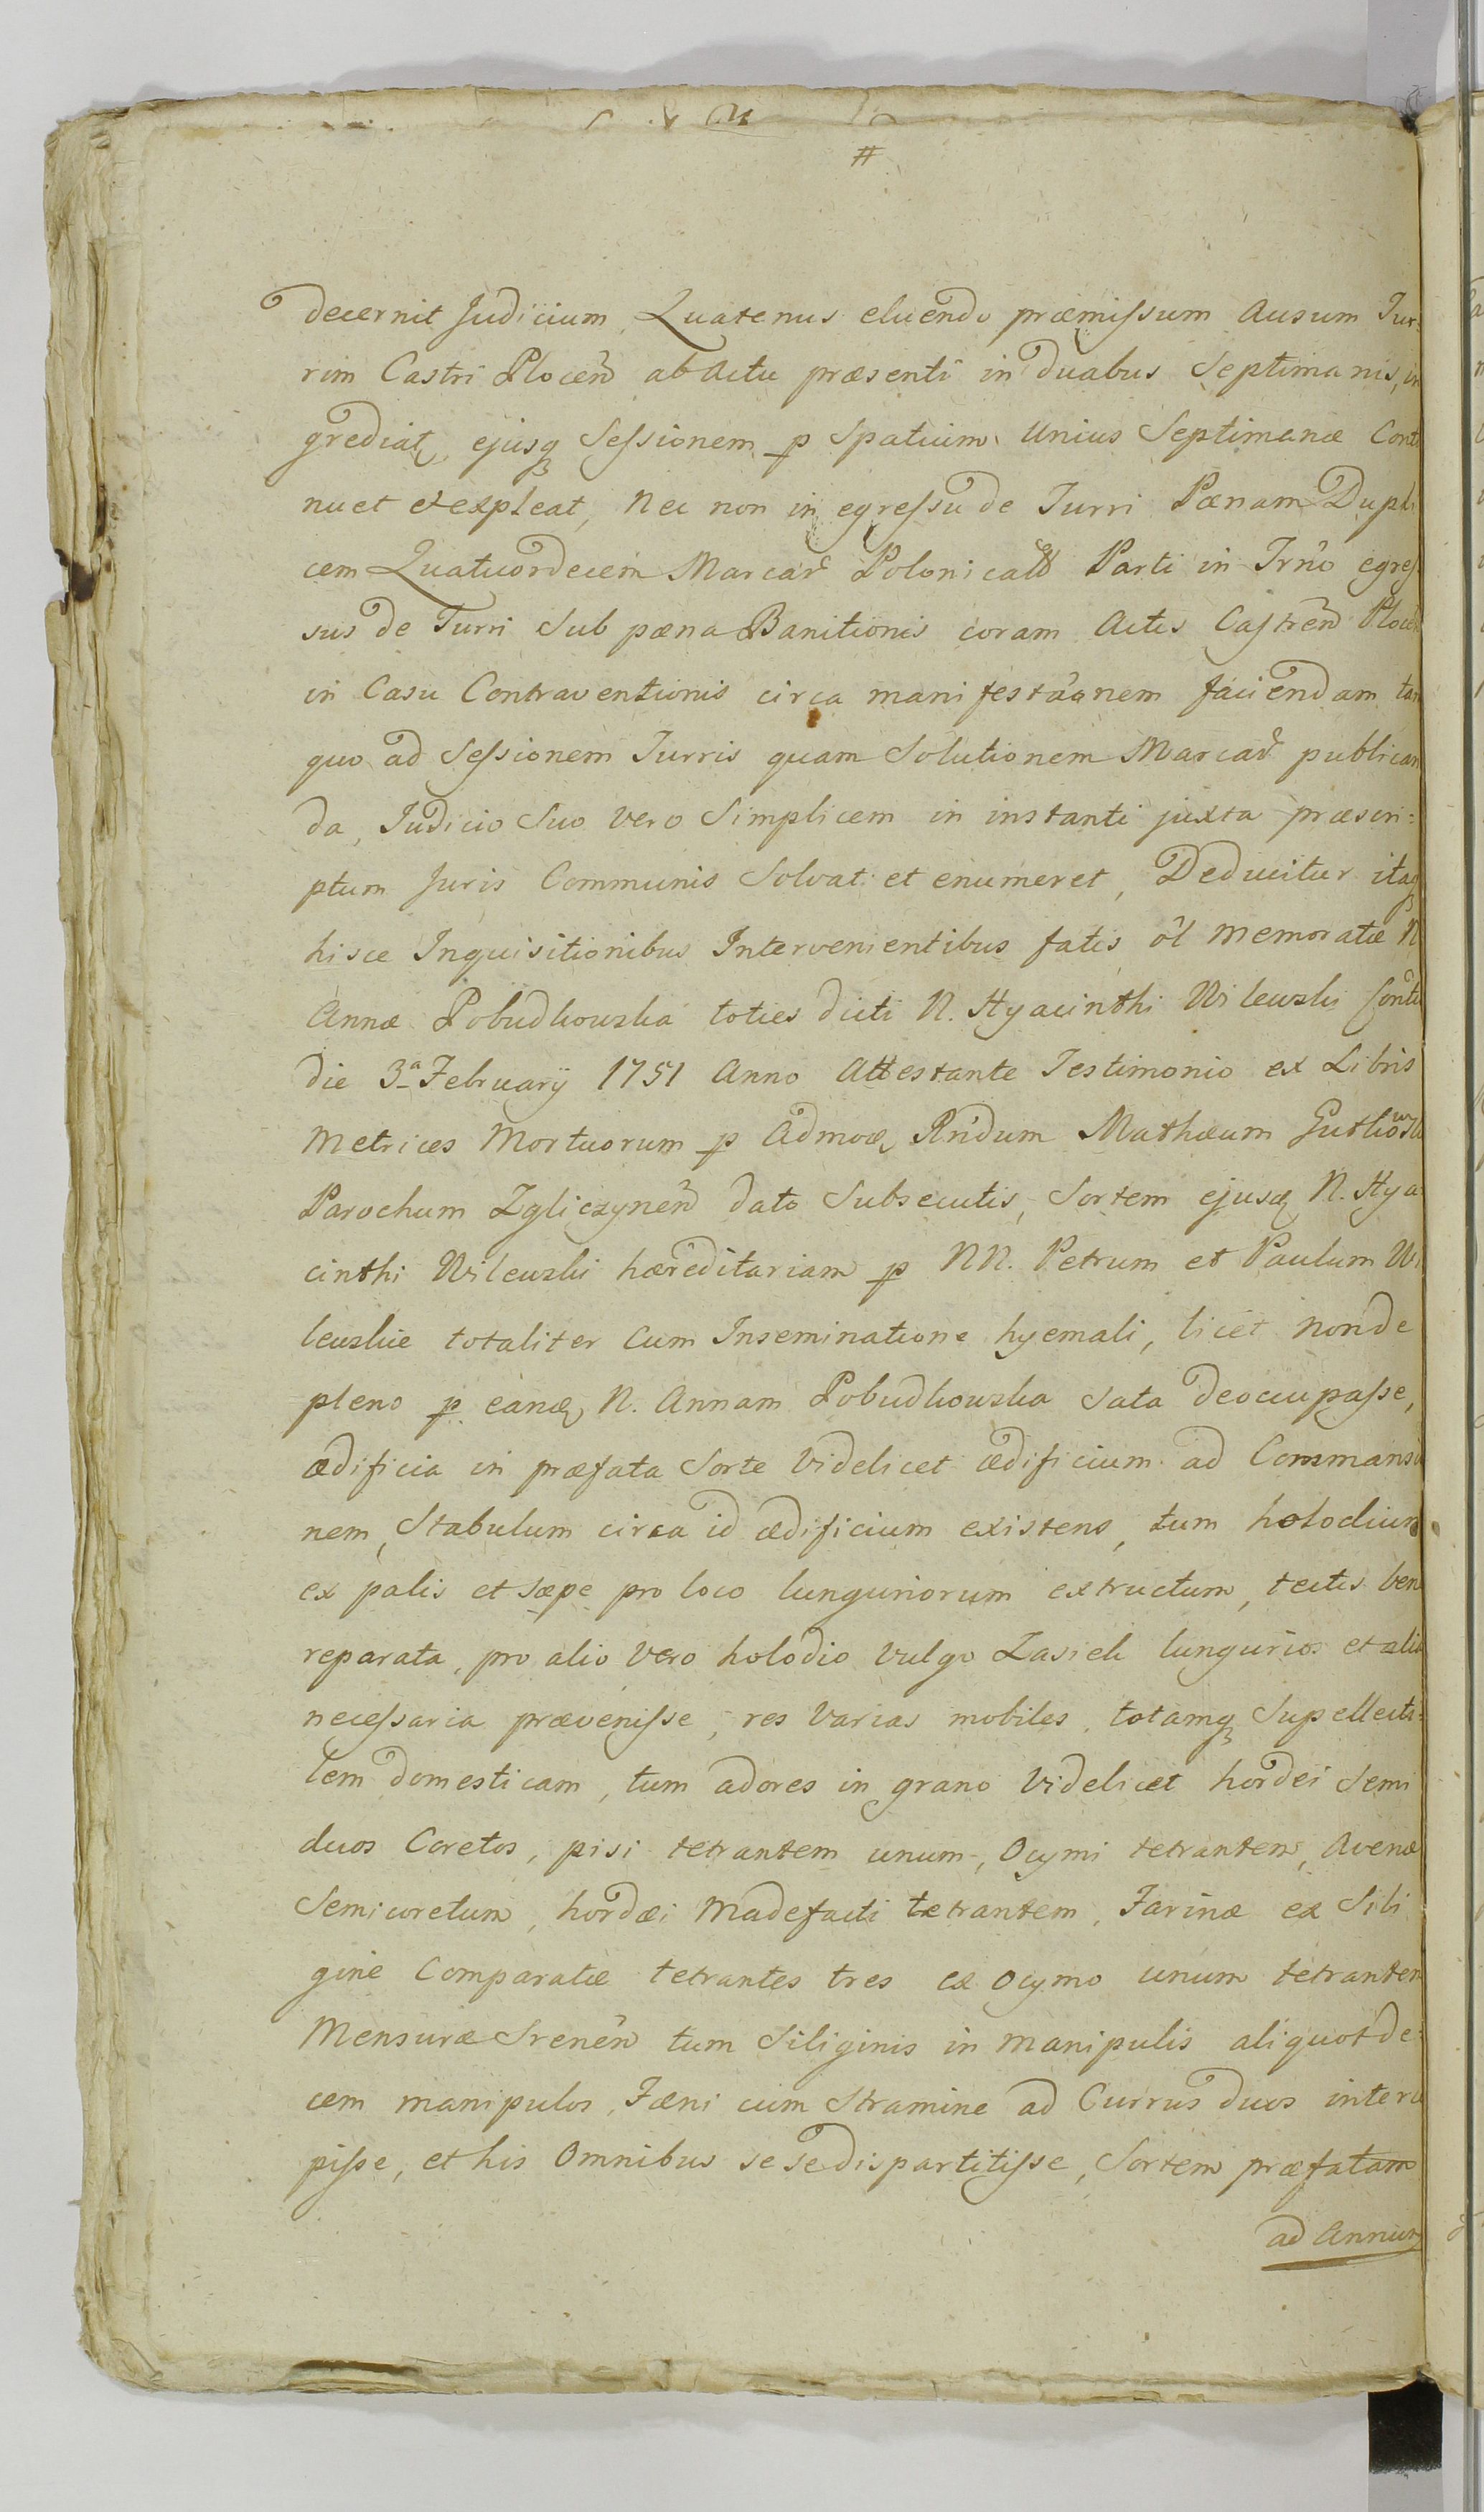 #
decernit Judicium, Quatenus eluendo præmissum Ausum Tur:
rim Castri Plocen̄ ab Actu præsenti in duabus Septimanis, in
grediatꝛ, ejusqꝫ Sessionem p Spatium Unius Septimanæ Conti
nuet et expleat, Nec non in egressu de Turri Pænam Dupli
cem Quatuordecem Marcar̄ Polonicaliū Parti in Trn̄o egres
sus de Turri Sub pæna Banitionis coram Actis Castren̄ Plocen̄
in Casu Contraventionis circa manifestāonem faciendam tam
quo ad Sessionem Turris quam Solutionem Marcar̄ publican
da, Judicio Suo vero Simplicem in instanti juxta præscri:
ptum Juris Communis Solvat et enumeret, Deducitur itaqꝫ
hisce Inquisitionibus Intervenientibus fatis ōl memoratæ N.
Annæ Pobudkowska toties dicti N. Hyacinthi Wilewski
die 3ᵃ February 1751 Anno Attestante Testimonio ex Libris
Metrices Mortuorum p Admoꝝ Rn̄dum Mathæum Gutkowski
Parochum Zgliczynen̄ dato Subsecutis, Sortem ejusꝝ N. Hya
cinthi Wilewski hæreditariam p NN. Petrum et Paulum Wi
lewskie totaliter Cum Inseminatione hyemali, licet non de
pleno p eanꝝ N. Annam Pobudkowska Sata deoccupasse,
ædificia in præfata Sorte Videlicet ædificium ad Commansio
nem, Stabulum circa id ædificium existens, tum holodium
ex palis et sæpe pro loco lunguriorum extructum, tectis bene
reparata, pro alio vero holodio vulgo Zasiek lungurios et alia
necessaria prævenisse, res varias mobiles, totamqꝫ Supellecti:
lem domesticam, tum adores in grano Videlicet hordei Semi
duos Coretos, pisi tetrantem unum, Ocymi tetrantem, Avenæ
Semicoretum, hordæi Madefacti tetrantem, Farinæ ex Sili
gine Comparatæ tetrantes tres ex Ocymo unum tetrantem
Mensuræ Srenen̄ tum Siliginis in Manipulis aliquot de:
cem manipulos, Fæni cum Stramine ad Currus duos interce
pisse, et his Omnibus se se dispartitisse, Sortem præfatam
ad Annum